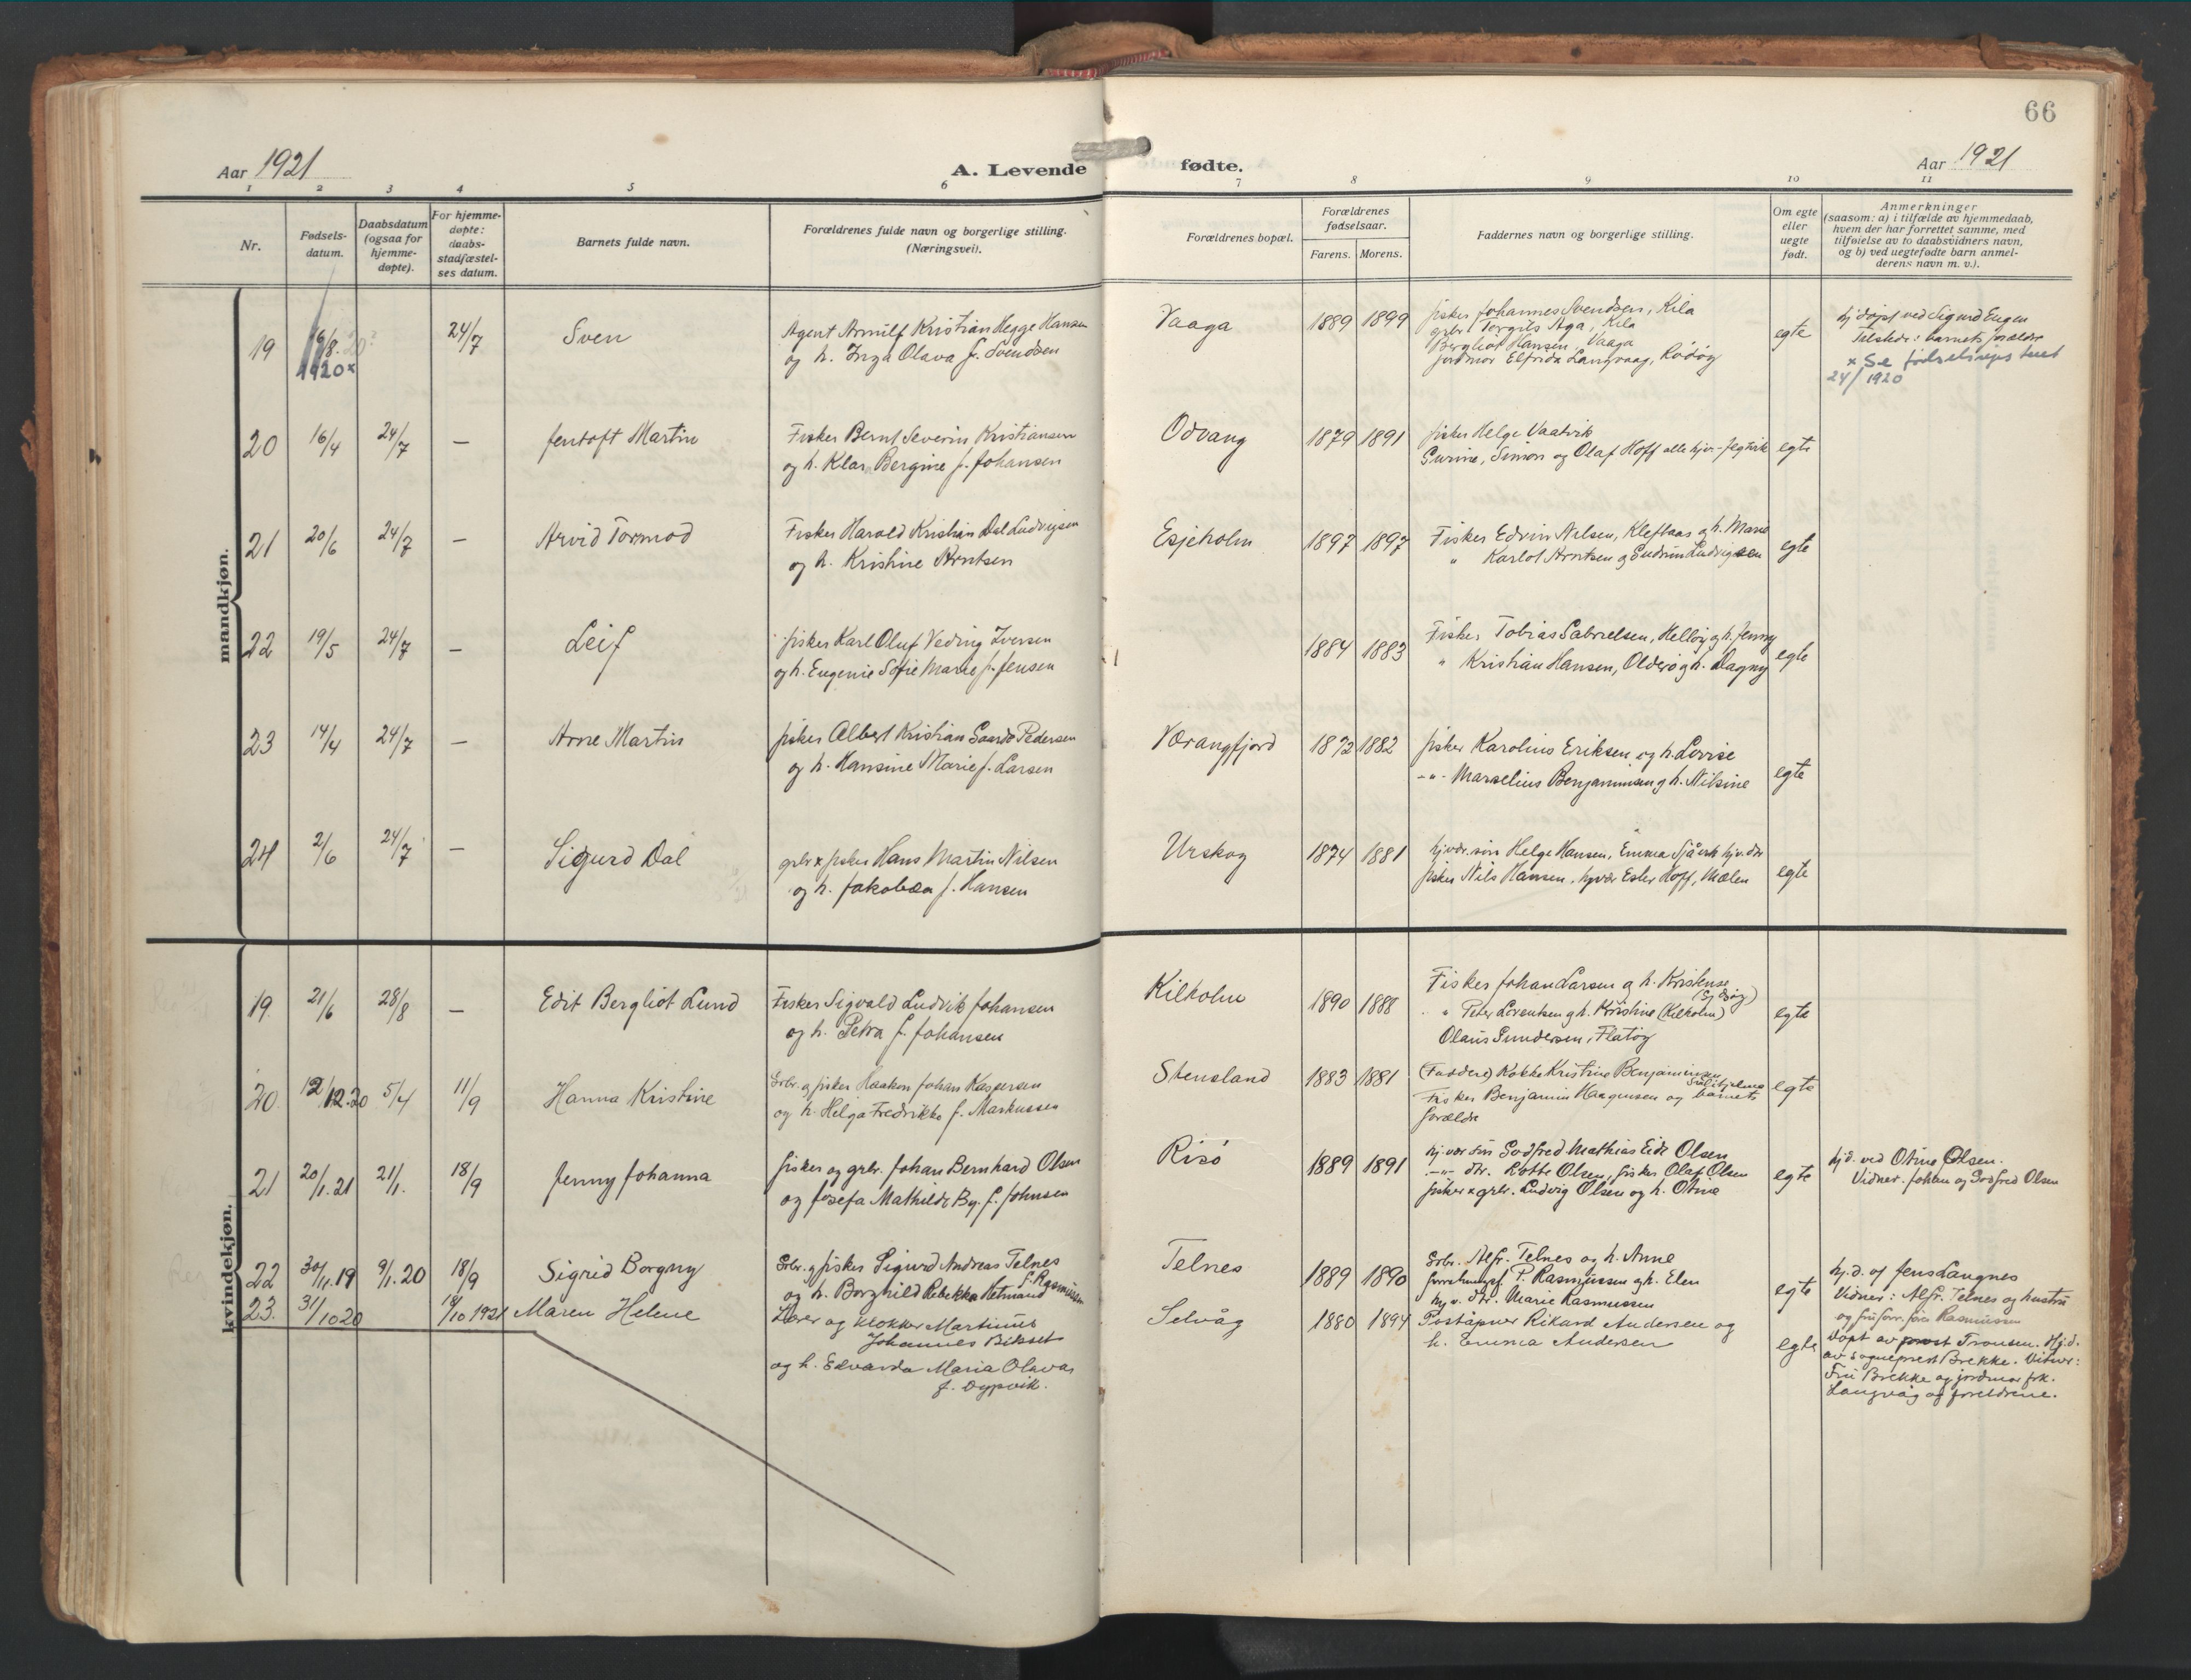 66
Aar 1921
A. Levende
fødte.
Aar 1921
1 2 3 4 5 6 7 8 9 10 11
Nr.
Fødsels-
datum.
Daabsdatum
(ogsaa for
hjemme-
døpte).
For hjemme-
døpte:
daabs-
stadfæstel-
ses datum.
Barnets fulde navn.
Forældrenes fulde navn og borgerlige stilling.
(Næringsvei).
Forældrenes bopæl.
Forældrenes
fødselsaar.
Farens. Morens.
Faddernes navn og borgerlige stilling.
Om egte
eller
uegte
født.
Anmerkninger
(saasom: a) i tilfælde av hjemmedaab,
hvem der har forrettet samme, med
tilføielse av to daabsvidners navn,
og b) ved uegtefødte barn anmel-
derens navn m. v.).
mandkjøn.
19
16/8.
1920x
24/7
Sven
Agent Arnulf Kristian Hegge Hansen
og h. Inga Olava f. Svendsen
Vaaga
1889 1899
fisker Johannes Svendsen, Kila
grbr. Torgils Aga, Kila
Bergliot Hansen, Vaaga
jordmor Elfrida Langvaag, Rødøy
egte
hj.døpt ved Sigurd Eugen
Tilstede: barnets forældre
x Se fødselsregisteret
24/1920
20 16/4 24/7 —
Jentoft Martin
Fisker Bernt Severin Kristiansen
og h. Klara Bergine f. Johansen
Odvang
1879 1891
fisker Helge Vaatvik
Surine, Simon og Olaf Hoff alle hjv.
egte
21 20/6 24/7 —
Arvid Tormod
Fisker Harald Kristian Dal Ludvigsen
og h. Kristine Arntsen
Esjeholm
1897 1897
Fisker Edvin Nilsen, Kleftaas og h. Marie
" Karlot Arntsen og Gudrun Ludvigsen
egte
22 19/5 24/7 —
Leif
fisker Karl Oluf Veding Iversen
og h. Eugenie Sofie Marie f. Jensen
1884 1883
Fisker Tobias Gabrielsen, Helløy og h. Jenny
" Kristian Hansen, Olderø og h. Dagny
egte
23 14/4 24/7 —
Arne Martin
fisker Albert Kristian Gaardø Pedersen
og h. Hansine Marie f. Larsen
Værangfjord
1872 1882
fisker Karolius Eriksen og h. Lovise
-"- Marselius Benjaminsen og h. Nilsine
egte
24 2/6 24/7 —
Sigurd Dal
grbr x fisker Hans Martin Nilsen
og h. Jakobea f. Hansen
Urskog
1874 1881
hjvær. søn Helge Hansen, Emma Sjåvik hjv. dtr
fisker Nils Hansen, hjvær Ester Hoff, Mælen
egte
kvindekjøn.
19. 21/6 28/8 —
Edit Bergliot Lund
Fisker Sigvald Ludvik Johansen
og h. Petra f. Johansen
Kilholm
1890 1888
Fisker Johan Larsen og h. Kristense
" Peter Lorentsen og h. Kristine (Kilholm)
Olaus Gundersen, Flatøy
egte
20 12/12.20 5/4 11/9
Hanna Kristine
Grbr. og fisker Haakon Johan Kaspersen
og h. Helga Fredrikke f. Markussen
Stensland
1883 1881
(Faddere) Kokke Kristine Benjaminsen
Fisker Benjamin Haagensen og barnets
forældre
egte
21 20/1.21 21/1. 18/9
Jenny Johanna
fisker og grbr. Johan Bernhard Olsen
og Josefa Mathilde By. f. Johnsen
Risø
1889 1891
hj.vær. søn Godfred Mathias Eide Olsen
-"- dtr. Lotte Olsen, fisker Olaf Olsen
fisker x grbr. Ludvig Olsen og h. Otine
egte
hj.d. ved Otine Olsen.
Vidner. Johan og Godfred Olsen
22 30/11.19 9/1.20 18/9
Sigrid Borgny
Grbr. og fisker Sigurd Andreas Telnes
og h. Borghild Rebekka Hetmand f. Rasmussen
Telnes
1889 1890
Grbr. Alfr. Telnes og h. Anne
P. Rasmussen og h. Elen
hj.v. dtr. Marie Rasmussen
egte
hj.d. af Jens Langnes
Vidner: Alfr. Telnes og hustru
Rasmussen
23. 31/10 20 18/10 1921
Maren Helene
Lærer og klokker Martinus
Johannes Bikset
og h. Edvarda Maria Olava
f. Dypvik.
Selvåg
1880 1894
Poståpner Rikard Andersen og
h. Emma Andersen
egte
Døpt av prost Tronsen. Hj.d.
av sogneprest Brekke. Vitner:
Fru Brekke og jordmor frk.
Langvåg og foreldrene.